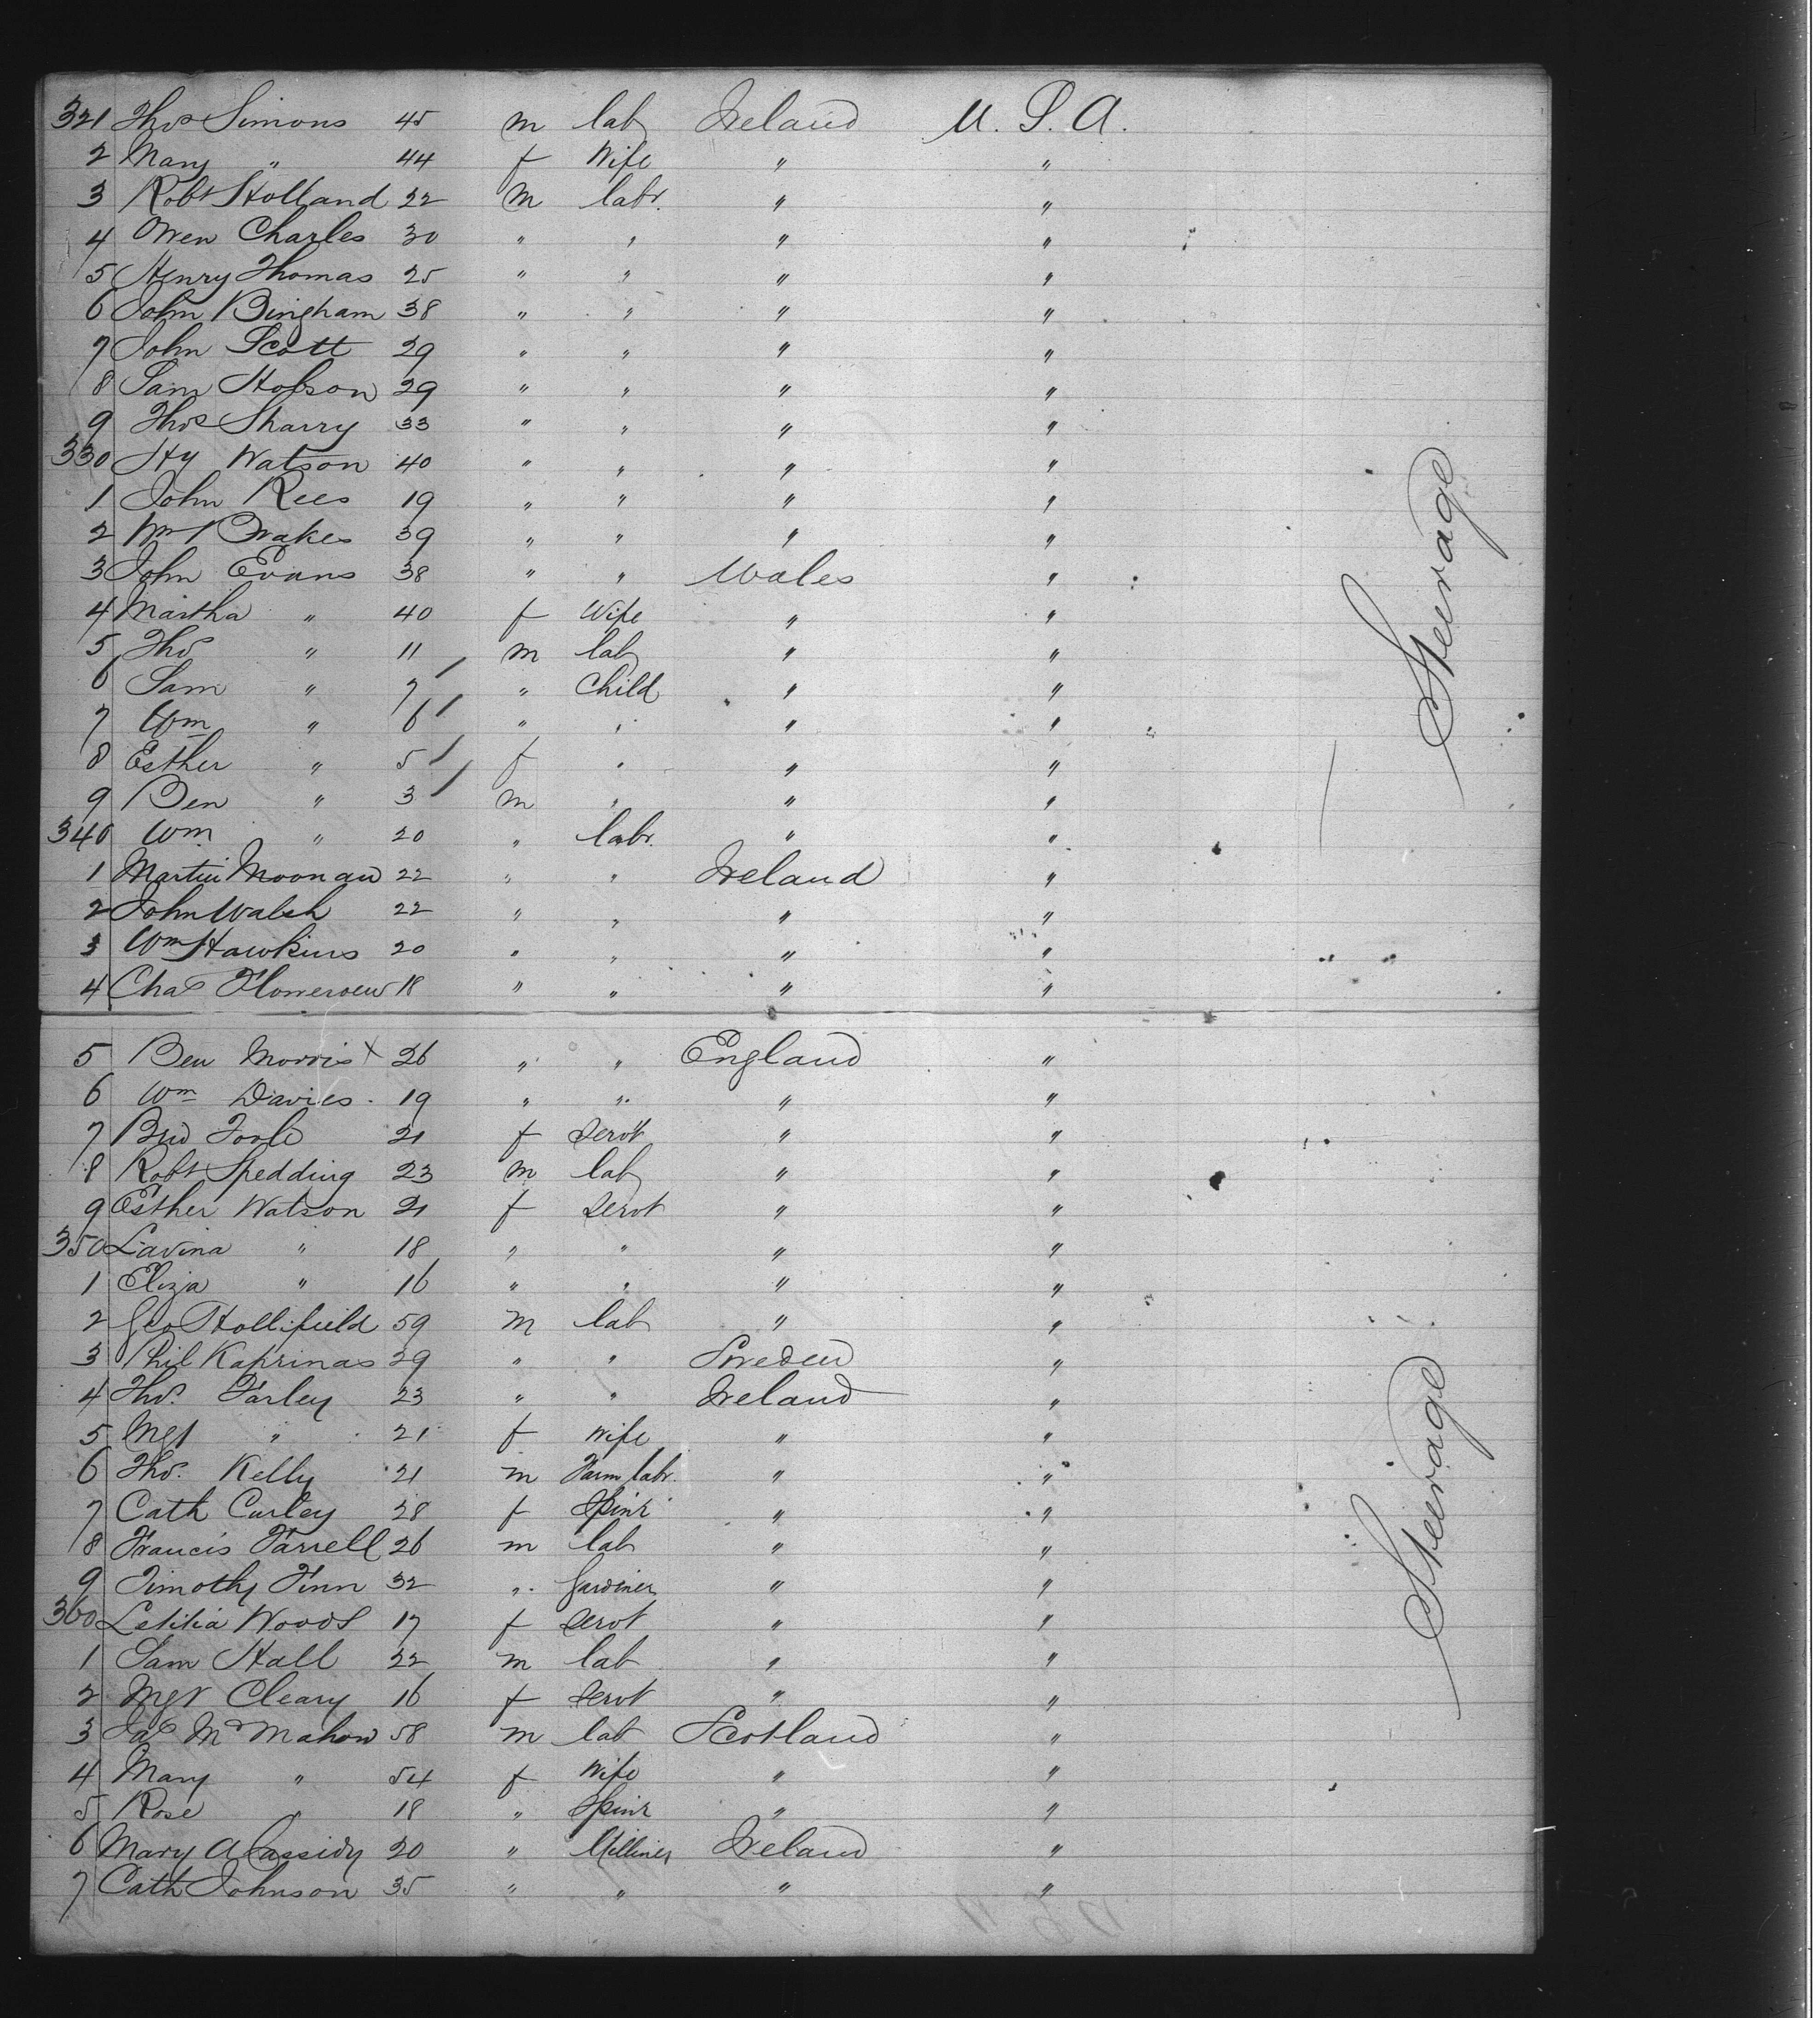 321 Thos Simons 45 m lab Ireland U. S. A.
2 Mary " 44 f Wife " "
3 Robt Holland 22 m labr. " "
4 Owen Charles 30 " " " "
5 Henry Thomas 25 " " " "
6 John Bingham 38 " " " "
7 John Scott 29 " " " "
8 Sam Hobson 29 " " " "
9 Thos Sharry 33 " " " "
330 Hy Watson 40 " " " "
1 John Rees 19 " " " "
2 Wm 39 " " " "
3 John Evans 38 " " Wales "
4 Martha " 40 f Wife " "
5 Tho " 11 m lab " "
6 Sam " 7 " Child " "
7 Wm " 6 " " " "
8 Esther " 5 f " " "
9 Ben " 3 m " " "
340 Wm " 20 " labr. " "
1 Martin Moonan 22 " " Ireland "
2 John Walsh 22 " " " "
3 Wm Hawkins 20 " " " "
4 Chas 18 " " " "
Steerage
5 Ben Morris x 26 " " England "
6 Wm Davies 19 " " " "
7 21 f servt " "
8 Robt Spedding 23 m lab " "
9 Esther Watson 21 f servt " "
350 Lavina " 18 " " " "
1 Eliza " 16 " " " "
2 Geo Hollifield 59 m lab " "
3 Phil Kaprinas 29 " " Sweden "
4 Tho. Farley 23 " " Ireland "
5 Mgt " 21 f wife " "
6 Tho. Kelly 21 m Farm labr. " "
7 Cath Curley 28 f Spinr " "
8 Francis Farrell 26 m lab " "
9 Timothy Finn 32 " Gardiner " "
360 Letitia Woods 17 f servt " "
1 Sam Hall 22 m lab " "
2 Mgt Cleary 16 f servt " "
3 Jas McMahon 58 m lab Scotland "
4 Mary " 54 f wife " "
5 Rose " 18 " Spinr " "
6 Mary A Cassidy 20 " Milliner Ireland "
7 Cath Johnson 35 " " " "
Steerage